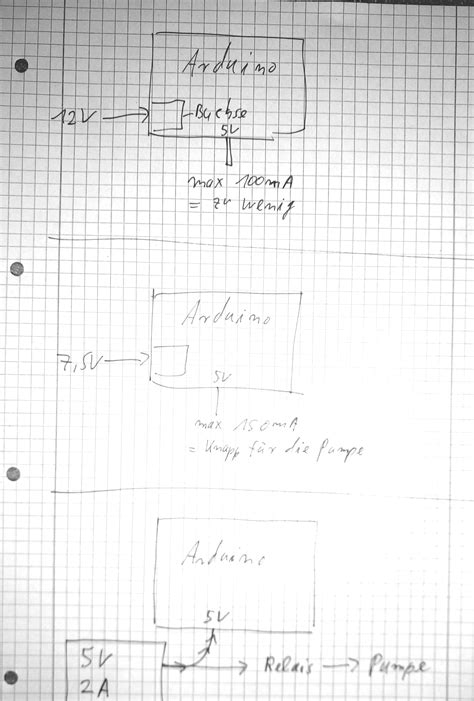 Arduino
12V
Buchse
5V
max 100mA
= zu wenig
Arduino
7,5V
5V
max 150mA
= Knapp für die Pumpe
Arduino
5V
5V
2A
Relais
Pumpe